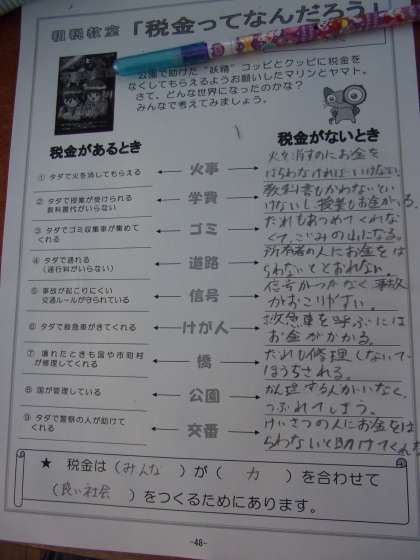 租税教室 「税金ってなんだろう」
公園で助けた“妖精”コッピとクッピに税金を
なくしてもらえるようお願いしたマリンとヤマト。
さて、どんな世界になったのかな?
みんなで考えてみましょう。
税金があるとき
税金がないとき
① タダで火を消してもらえる
火事
火を消すのにお金を
はらわなければいけない。
② タダで授業が受けられる
教科書代がいらない
学費
教科書もかわないと
いけないし授業もお金がいる。
③ タダでゴミ収集車が集めて
くれる
ゴミ
だれもあつめてくれな
くて、ごみの山になる。
④ タダで通れる
(通行料がいらない)
道路
所有者の人にお金をは
らわないととおれない。
⑤ 事故が起こりにくい
交通ルールが守られている
信号
信号がつかなく事故
がおこりやすい。
⑥ タダで救急車がきてくれる
けが人
救急車を呼ぶには
お金がかかる。
⑦ 壊れたときも国や市町村
が修理してくれる
橋
だれも修理しないで
ほうちされる。
⑧ 国が管理している
公園
する人がいなく、
つぶれてしまう。
⑨ タダで警察の人が助けて
くれる
交番
けいさつの人にお金をは
らわないと助けてくれな
★ 税金は(みんな)が(力)を合わせて
(良い社会)をつくるためにあります。
-48-